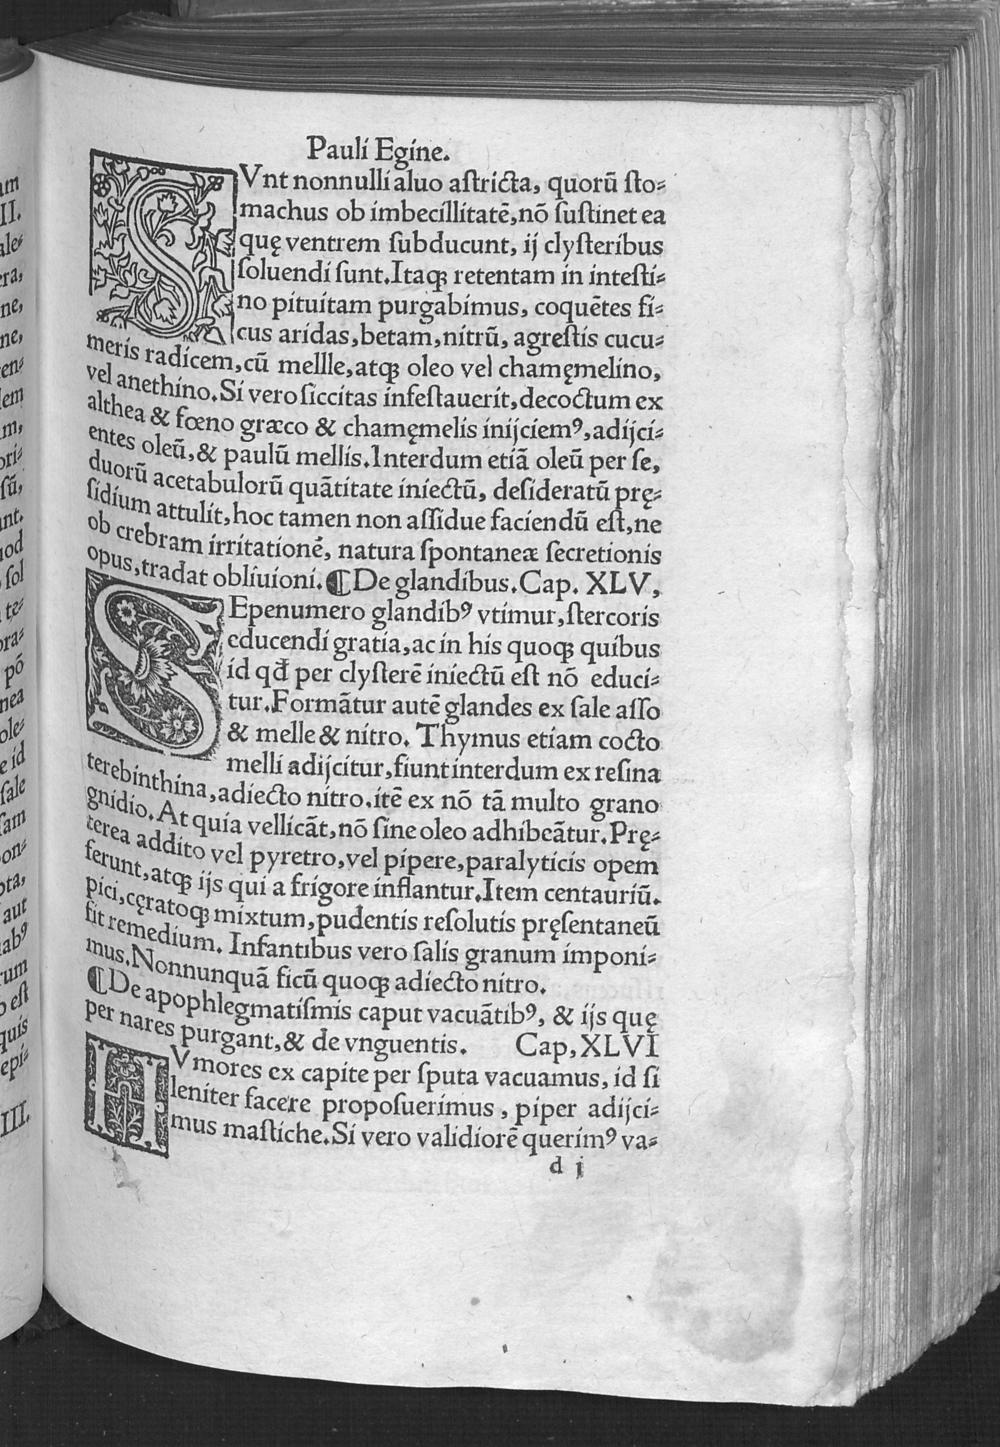 Pauli Egine.
SVnt nonnulli aluo astricta, quorū sto=
machus ob imbecillitatē, nō sustinet ea
quę ventrem subducunt, ij clysteribus
soluendi sunt. Itaqꝫ retentam in intesti=
no pituitam purgabimus, coquētes fi=
cus aridas, betam, nitrū, agrestis cucu=
meris radicem, cū mellle, atqꝫ oleo vel chamęmelino,
vel anethino. Si vero siccitas infestauerit, decoctum ex
althea & fœno græco & chamęmelis inijciemꝰ, adijci=
entes oleū, & paulū mellis. Interdum etiā oleū per se,
duorū acetabulorū quātitate iniectū, desideratū prę=
sidium attulit, hoc tamen non assidue faciendū est, ne
ob crebram irritationē, natura spontaneæ secretionis
opus, tradat obliuioni. ¶ De glandibus. Cap. XLV,
SEpenumero glandibꝰ vtimur, stercoris
educendi gratia, ac in his quoqꝫ quibus
id qđ per clysterē iniectū est nō educi=
tur. Formātur autē glandes ex sale asso
& melle & nitro. Thymus etiam cocto
melli adijcitur, fiunt interdum ex resina
terebinthina, adiecto nitro. itē ex nō tā multo grano
gnidio. At quia vellicāt, nō sine oleo adhibeātur. Prę=
terea addito vel pyretro, vel pipere, paralyticis opem
ferunt, atqꝫ ijs qui a frigore inflantur. Item centauriū.
pici, cęratoqꝫ mixtum, pudentis resolutis pręsentaneū
fit remedium. Infantibus vero salis granum imponi=
mus. Nonnunquā ficū quoqꝫ adiecto nitro.
¶ De apophlegmatismis caput vacuātibꝰ, & ijs quę
per nares purgant, & de vnguentis. Cap, XLVI
HVmores ex capite per sputa vacuamus, id si
leniter facere proposuerimus, piper adijci=
mus mastiche. Si vero validiorē querimꝰ va=
d j